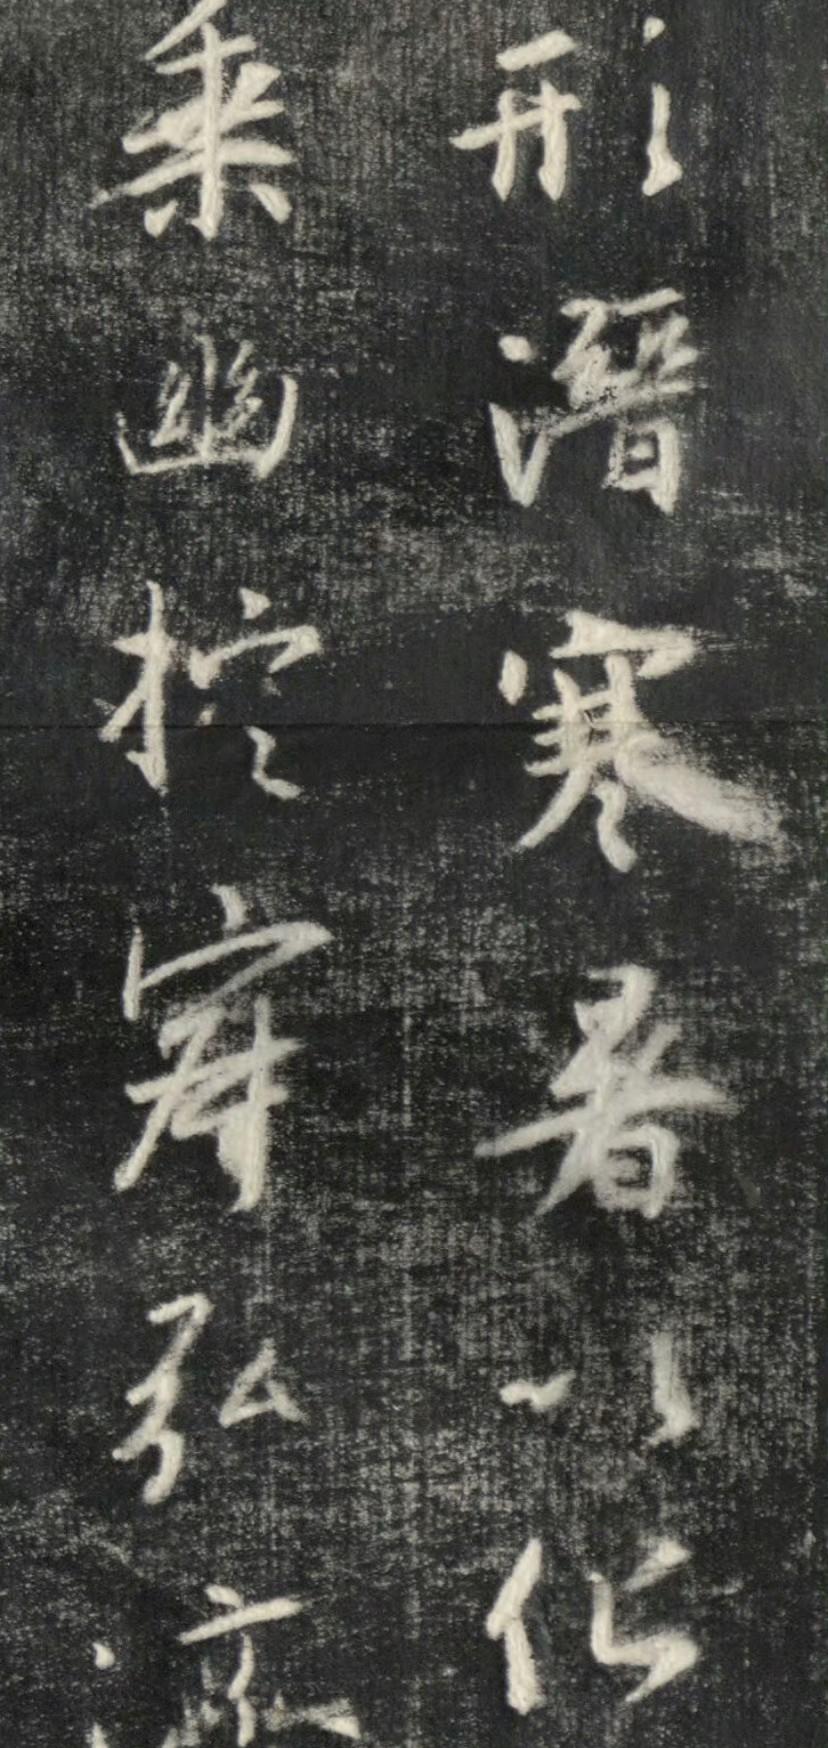 形潛寒暑以化
乘幽控寂弘濟